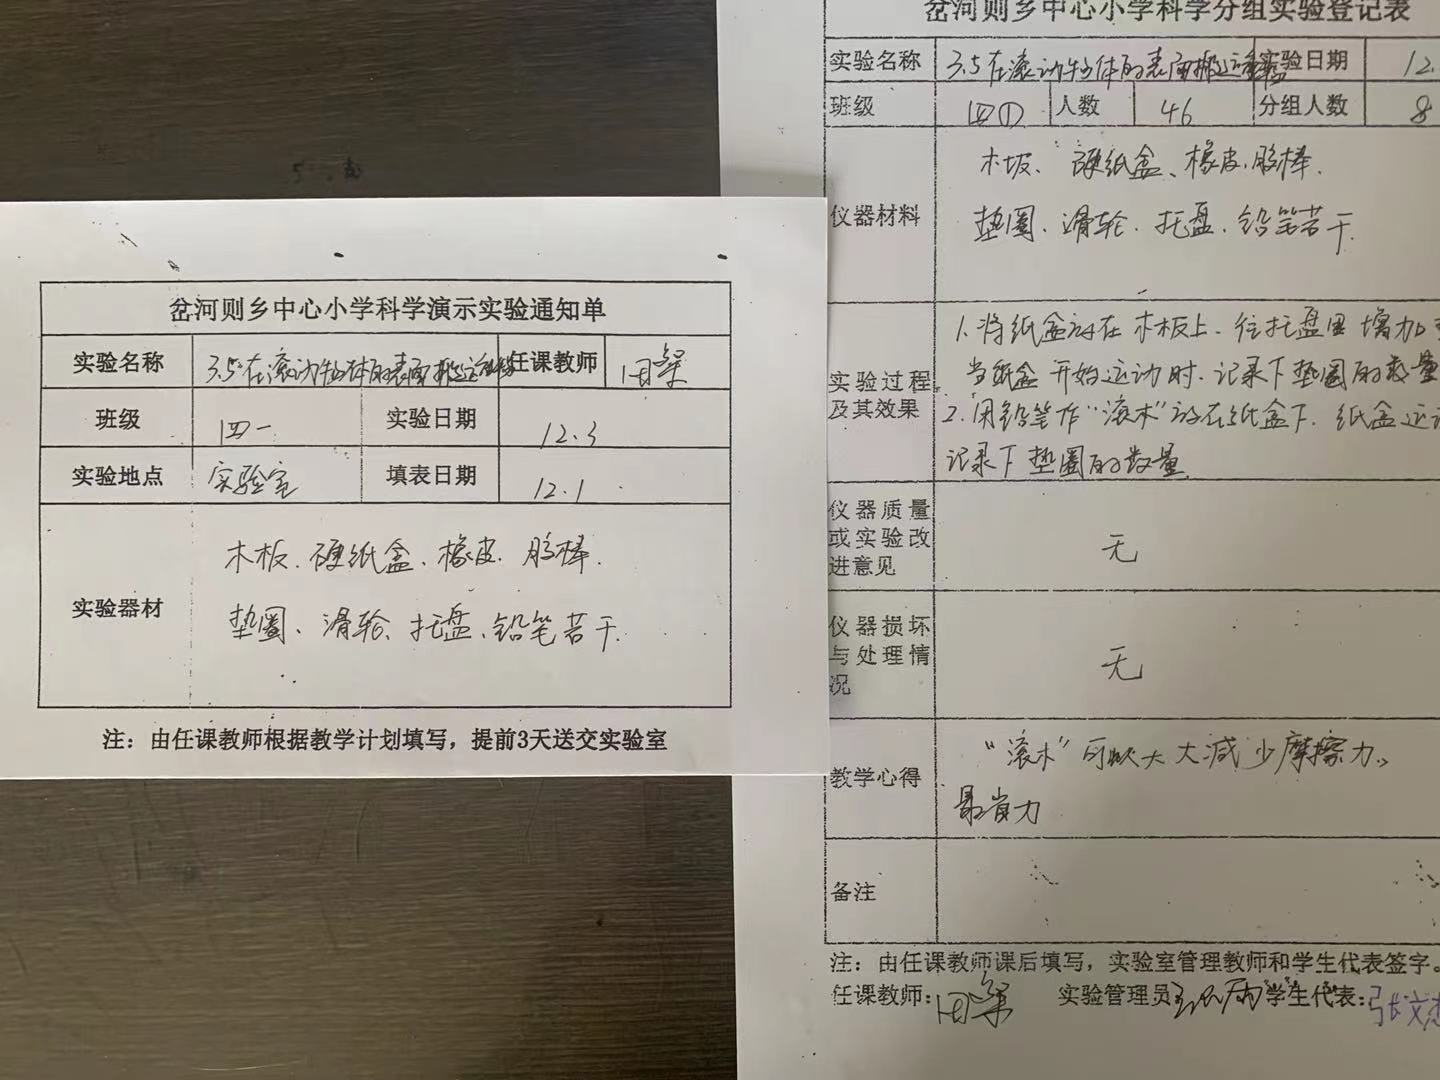 岔河则乡中心小学科学演示实验通知单
实验名称 3.5在滚动物体的表面搬运 任课教师
班级 四一 实验日期 12.3
实验地点 实验室 填表日期 12.1
实验器材 木板、硬纸盒、橡皮、胶棒、
垫圈、滑轮、托盘、铅笔若干
注：由任课教师根据教学计划填写，提前3天送交实验室
岔河则乡中心小学科学分组实验登记表
实验名称 3.5在滚动物体的表面搬运 实验日期 12.
班级 四① 人数 46 分组人数 8
仪器材料 木板、硬纸盒、橡皮、胶棒、
垫圈、滑轮、托盘、铅笔若干
实验过程及其效果
1.将纸盒放在木板上、往托盘里增加
当纸盒开始运动时、记录下垫圈的数量
2.用铅笔作“滚木”放在纸盒下、纸盒运
记录下垫圈的数量
仪器质量
或实验改
进意见
无
仪器损坏
与处理情
况
无
教学心得 “滚木”可以大大减少摩擦力、
最省力
备注
注：由任课教师课后填写，实验室管理教师和学生代表签字。
任课教师： 实验管理员 学生代表：张文